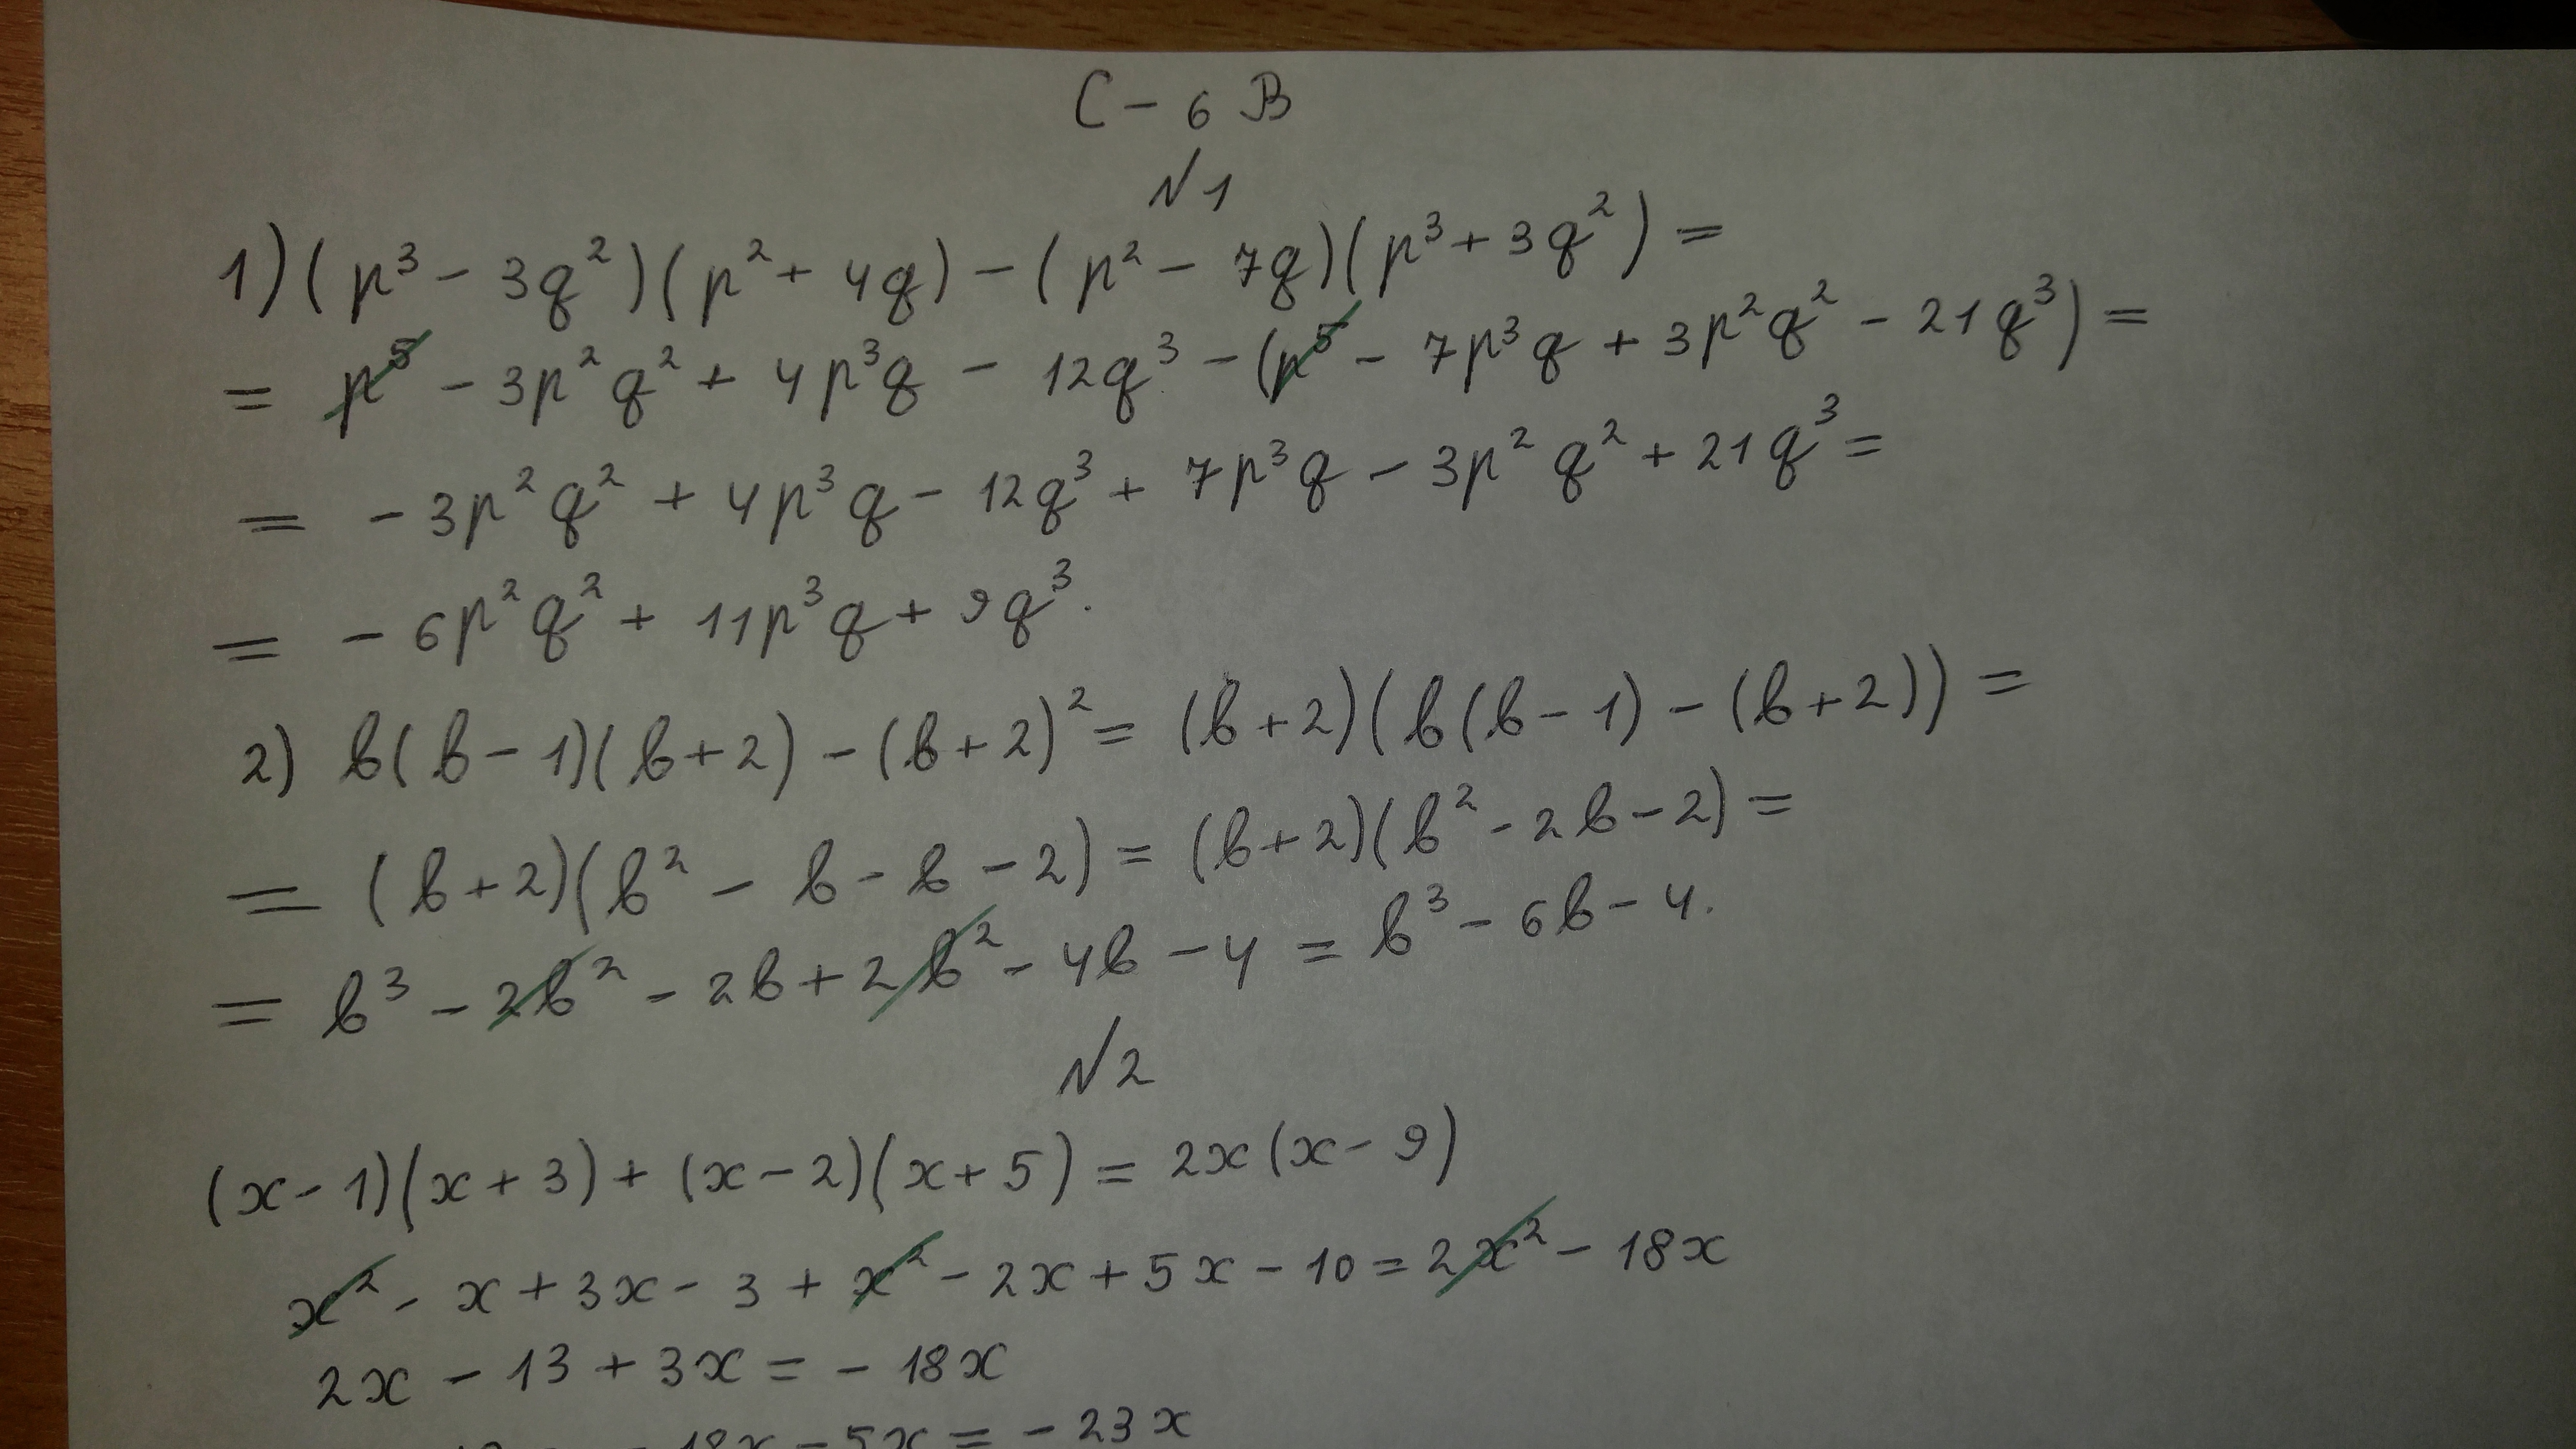 С - 6 В
№1
1) (p³ - 3q²)(p² + 4q) - (p² - 7q)(p³ + 3q²) =
= p⁵ - 3p²q² + 4p³q - 12q³ - (p⁵ - 7p³q + 3p²q² - 21q³) =
= - 3p²q² + 4p³q - 12q³ + 7p³q - 3p²q² + 21q³ =
= - 6p²q² + 11p³q + 9q³.
2) b(b - 1)(b + 2) - (b + 2)² = (b + 2)(b(b - 1) - (b + 2)) =
= (b + 2)(b² - b - b - 2) = (b + 2)(b² - 2b - 2) =
= b³ - 2b² - 2b + 2b² - 4b - 4 = b³ - 6b - 4.
№2
(x - 1)(x + 3) + (x - 2)(x + 5) = 2x(x - 9)
x² - x + 3x - 3 + x² - 2x + 5x - 10 = 2x² - 18x
2x - 13 + 3x = - 18x
- 18x - 5x = - 23x